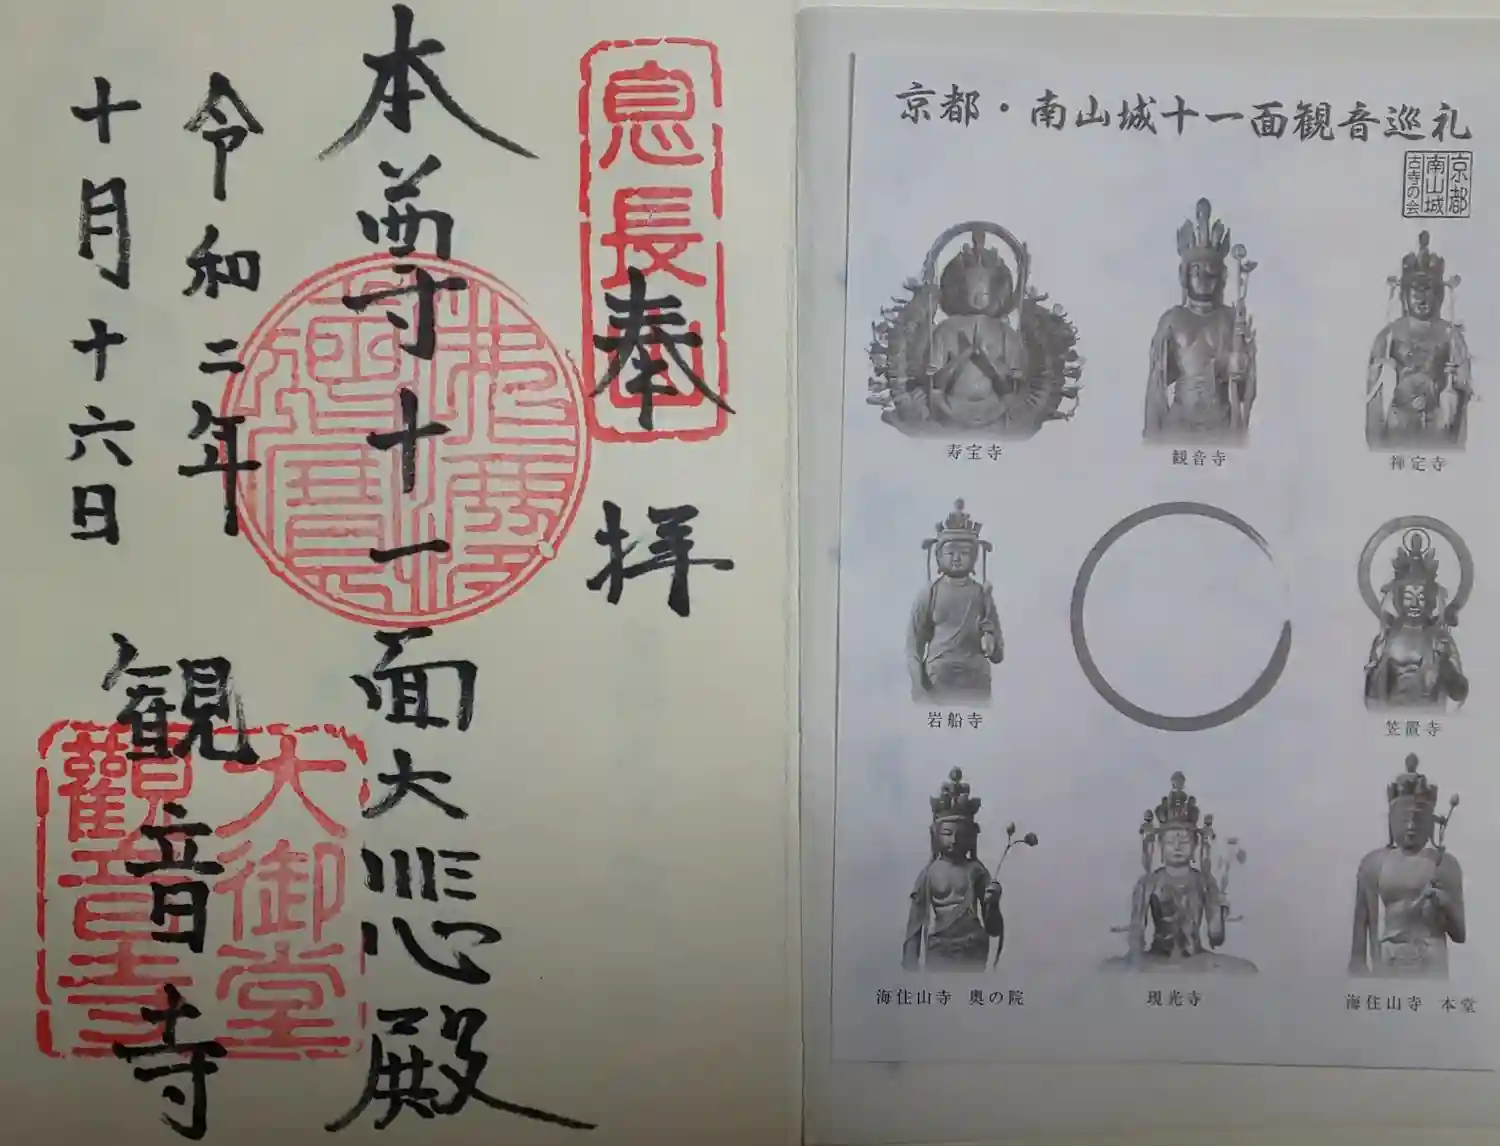 奉拝
息長山
本尊十一面大悲殿
令和二年
十月十六日
観音寺
大御堂
觀音寺
京都・南山城十一面観音巡礼
京都
南山城
古寺の会
寿宝寺
観音寺
禅定寺
岩船寺
笠置寺
海住山寺 奥の院
現光寺
海住山寺 本堂